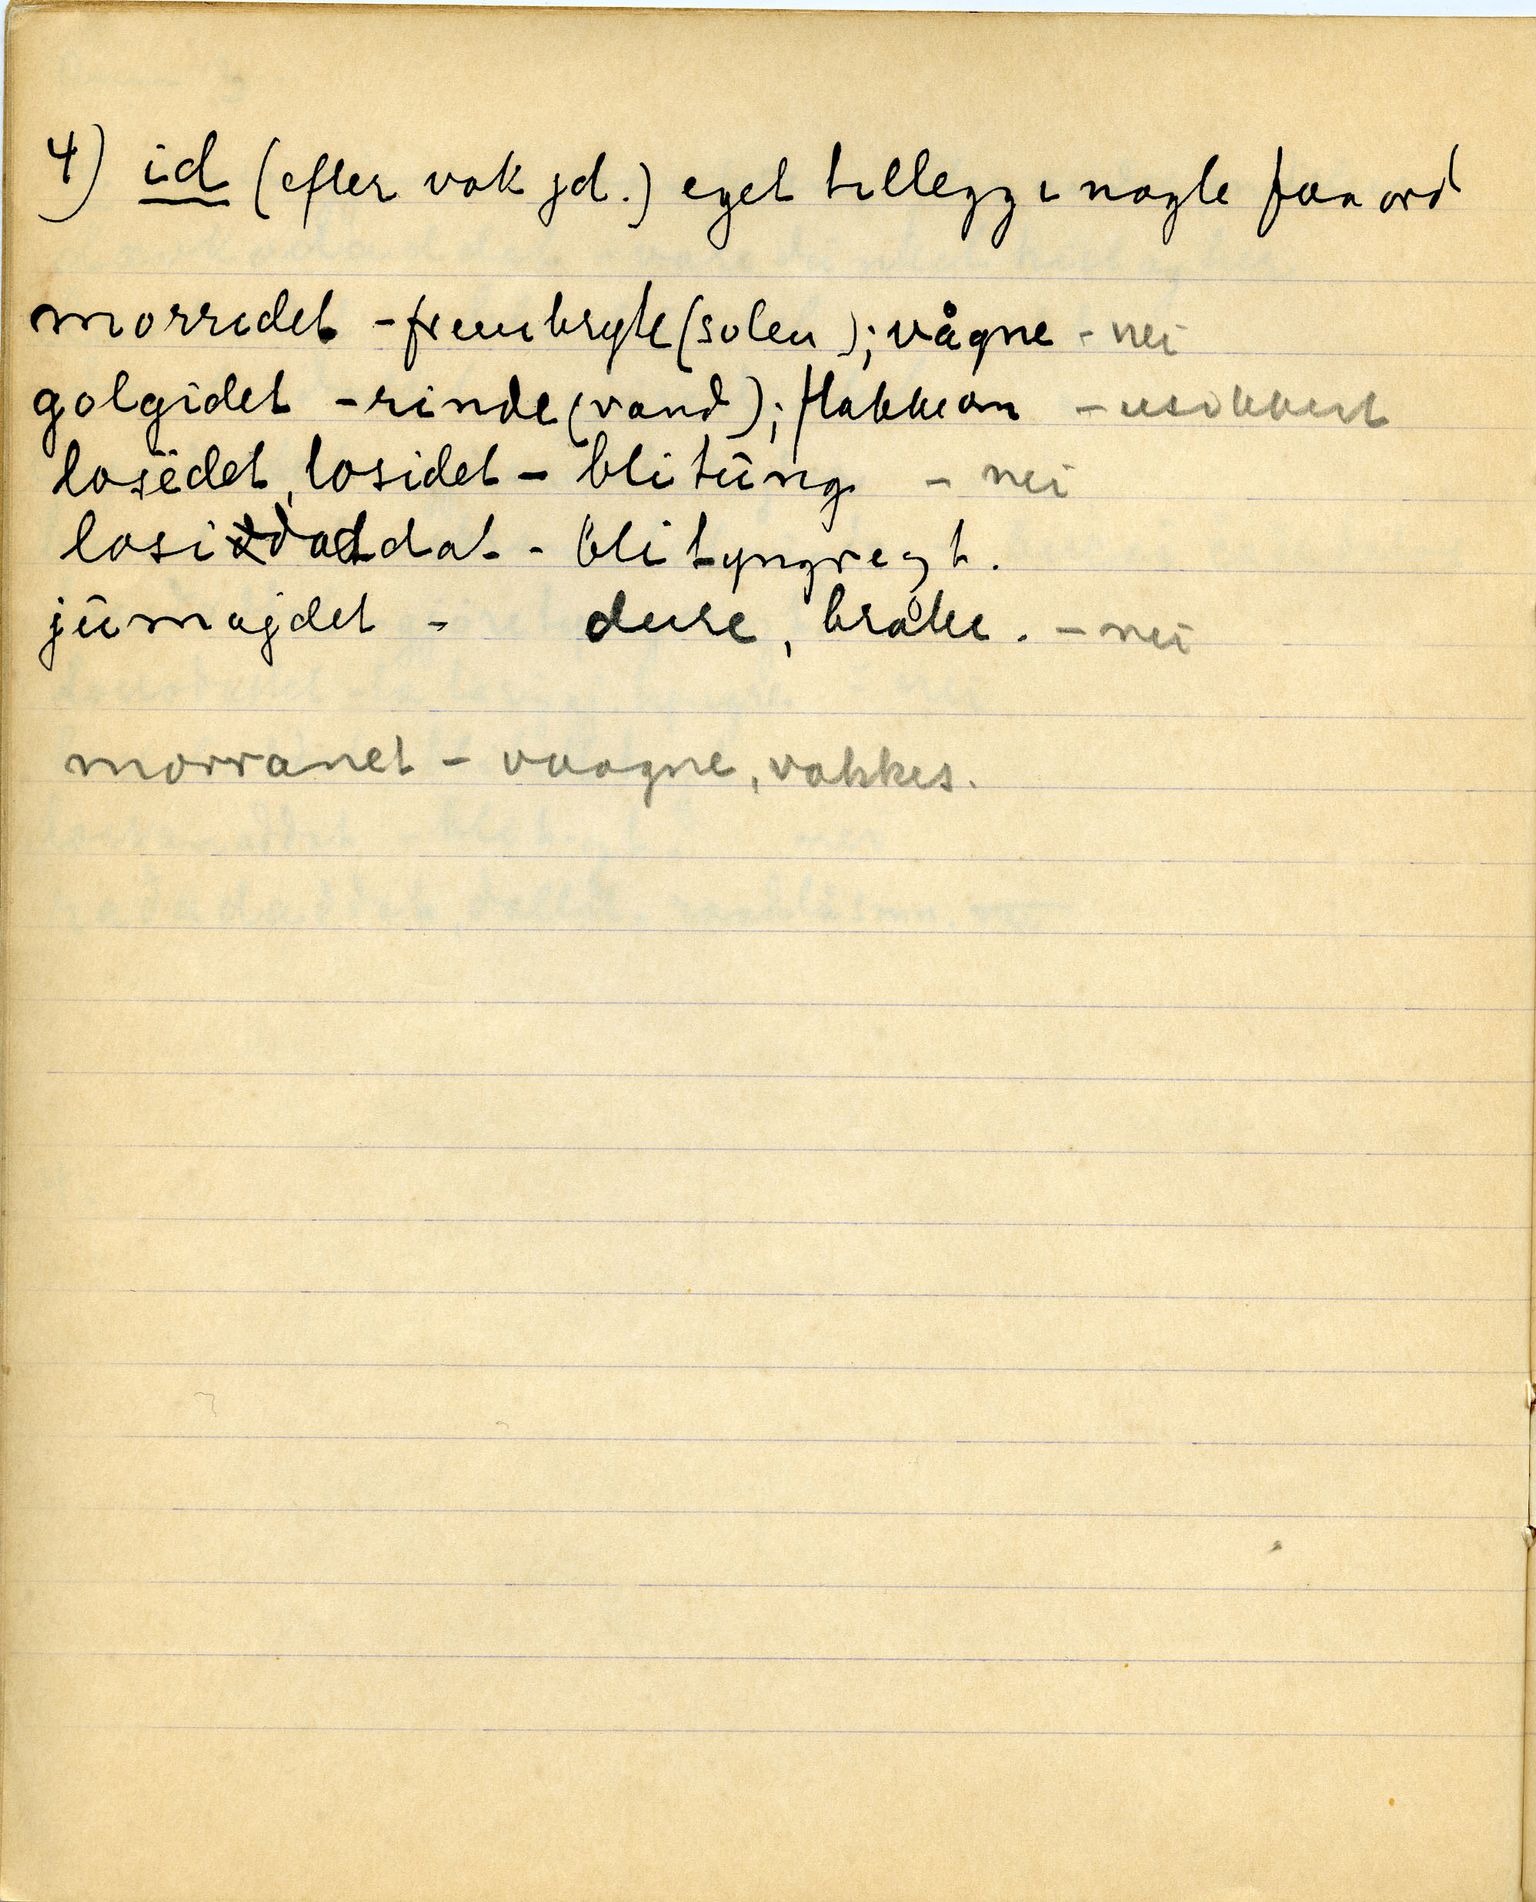 4) id (efter vok jd.) eget tillegg i nogle faa ord
morridet - frembryte (solen); vågne - nei
golgidet - rinde (vand); flakke om - usikkert
losëdet, losidet - bli tung - nei
losiddat - bli tyngre
jūmajdet - dure, bråke. - nei
morranet - vaagne, vakkes.